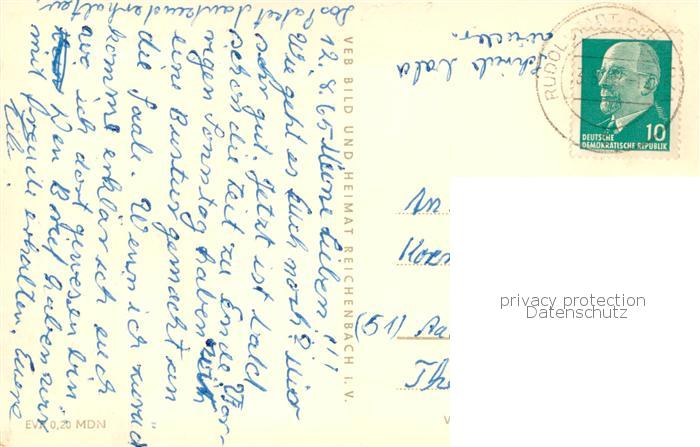 Das Paket dankend erhalten.
12.8.65 Meine Lieben!!!
Wie geht es Euch noch? Mir
sehr gut. Jetzt ist bald
schon die Zeit zu Ende. Vor-
rigen Sonntag haben wir
eine Bustour gemacht an
die Saale. Wenn ich zurück
komme erklär ich euch
wo ich dort gewesen bin
Den Brief haben wir
mit freude erhalten. Euere
Schreib bald
VEB BILD UND HEIMAT REICHENBACH I. V.
EVP 0,20 MDN
RUDOLSTADT
DEUTSCHE
DEMOKRATISCHE REPUBLIK
10
An
(51)
privacy protection
Datenschutz